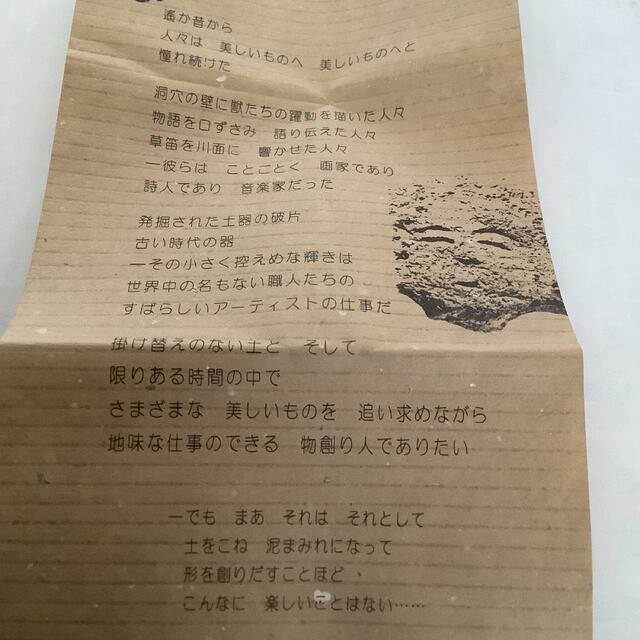 遙か昔から
人々は 美しいものへ 美しいものへと
憧れ続けた
洞穴の壁に獣たちの躍動を描いた人々
物語を口ずさみ 語り伝えた人々
草笛を川面に 響かせた人々
―彼らは ことごとく 画家であり
詩人であり 音楽家だった
発掘された土器の破片
古い時代の器
―その小さく控えめな輝きは
世界中の名もない職人たちの
すばらしいアーティストの仕事だ
掛け替えのない土と そして
限りある時間の中で
さまざまな 美しいものを 追い求めながら
地味な仕事のできる 物創り人でありたい
―でも まあ それは それとして
土をこね 泥まみれになって
形を創りだすことほど
こんなに 楽しいことはない……